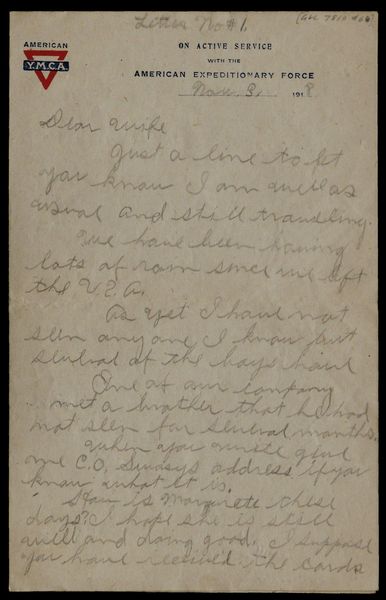 Letter No #1.
AMERICAN
Y.M.C.A.
ON ACTIVE SERVICE
WITH THE
AMERICAN EXPEDITIONARY FORCE
Nov. 3, 1918
Dear Wife
Just a line to let
you know I am well as
usual and still traveling.
We have been having
lots of rain since we left
the U.S.A.
As yet I have not
seen anyone I know but
several of the boys have
One of our company
met a brother that he had
not seen for several months.
When you write give
me C.O. address if you
know what it is.
How is Margarete these
days? I hope she is still
well and doing good. I suppose
you have received the cards